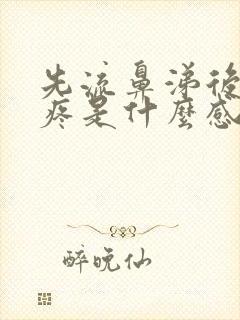 先流鼻涕後
疼是什麼感
醉晚仙